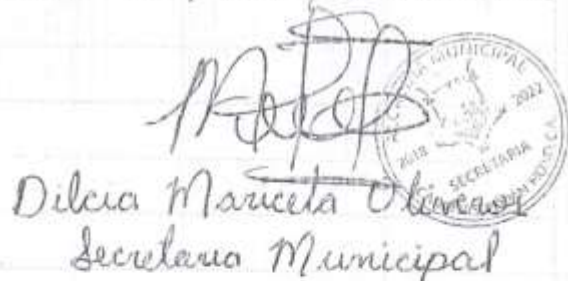 MUNICIPAL
2018
2022
SECRETARIA
Dilcia Maricela Oliveros
Secretaria Municipal